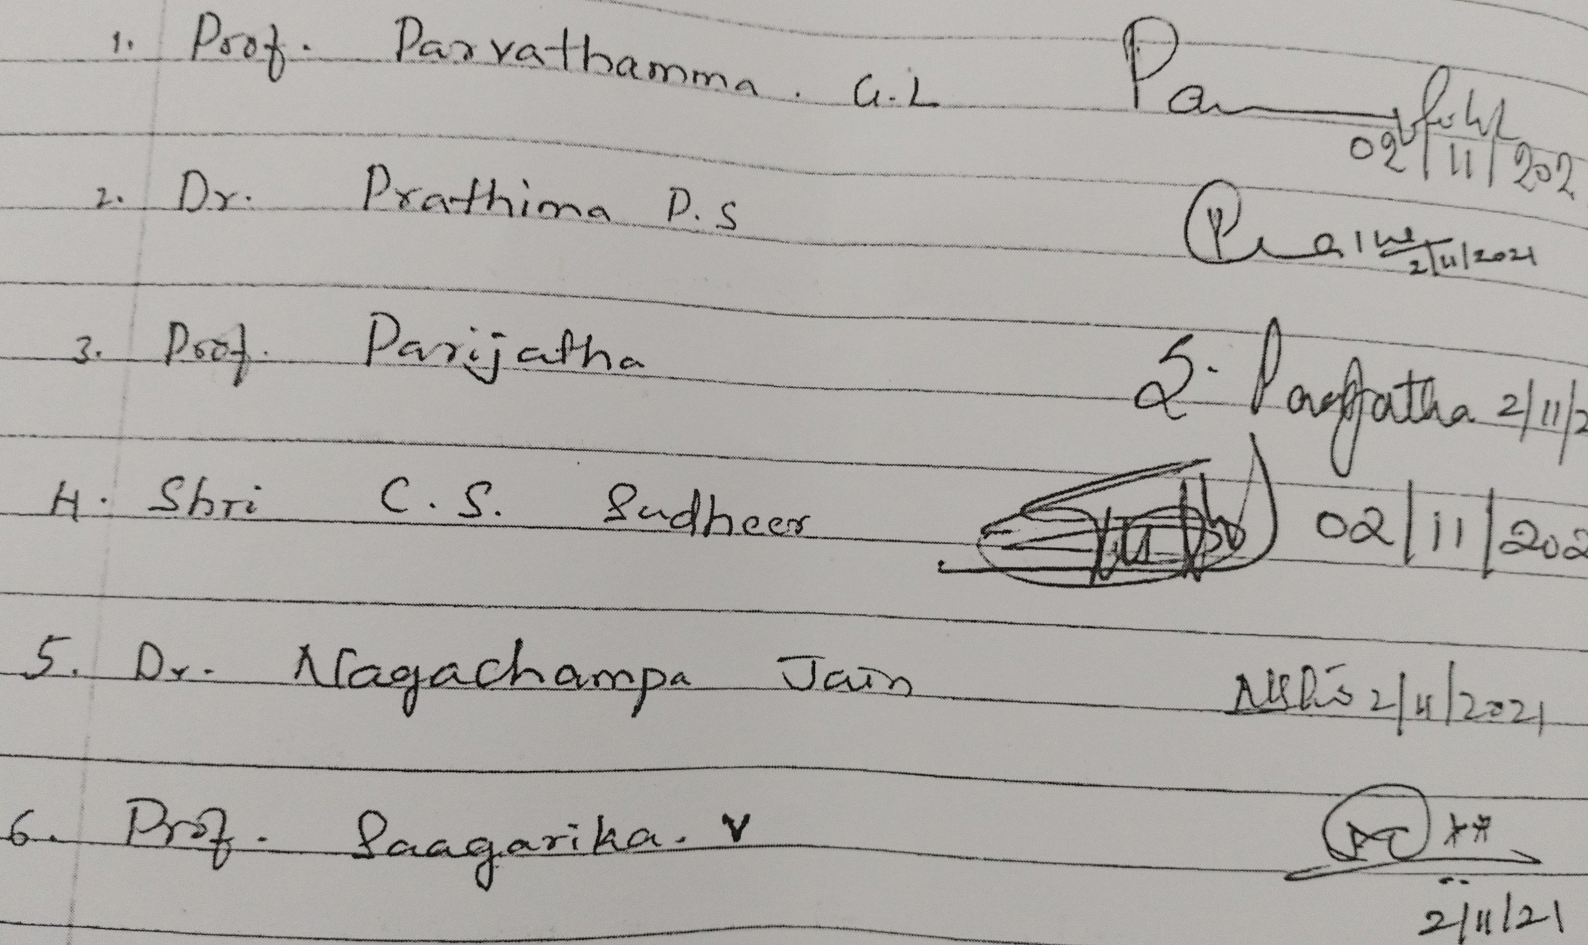 1. Prof. Parvathamma. G.L 02/11/202
2. Dr. Prathima P.S 2/11/2021
3. Prof. Parijatha S. Parijatha 2/11/2
4. Shri C.S. Sudheer 02/11/202
5. Dr. Nagachampa Jain 2/11/2021
6. Prof. Saagarika. V
2/11/21